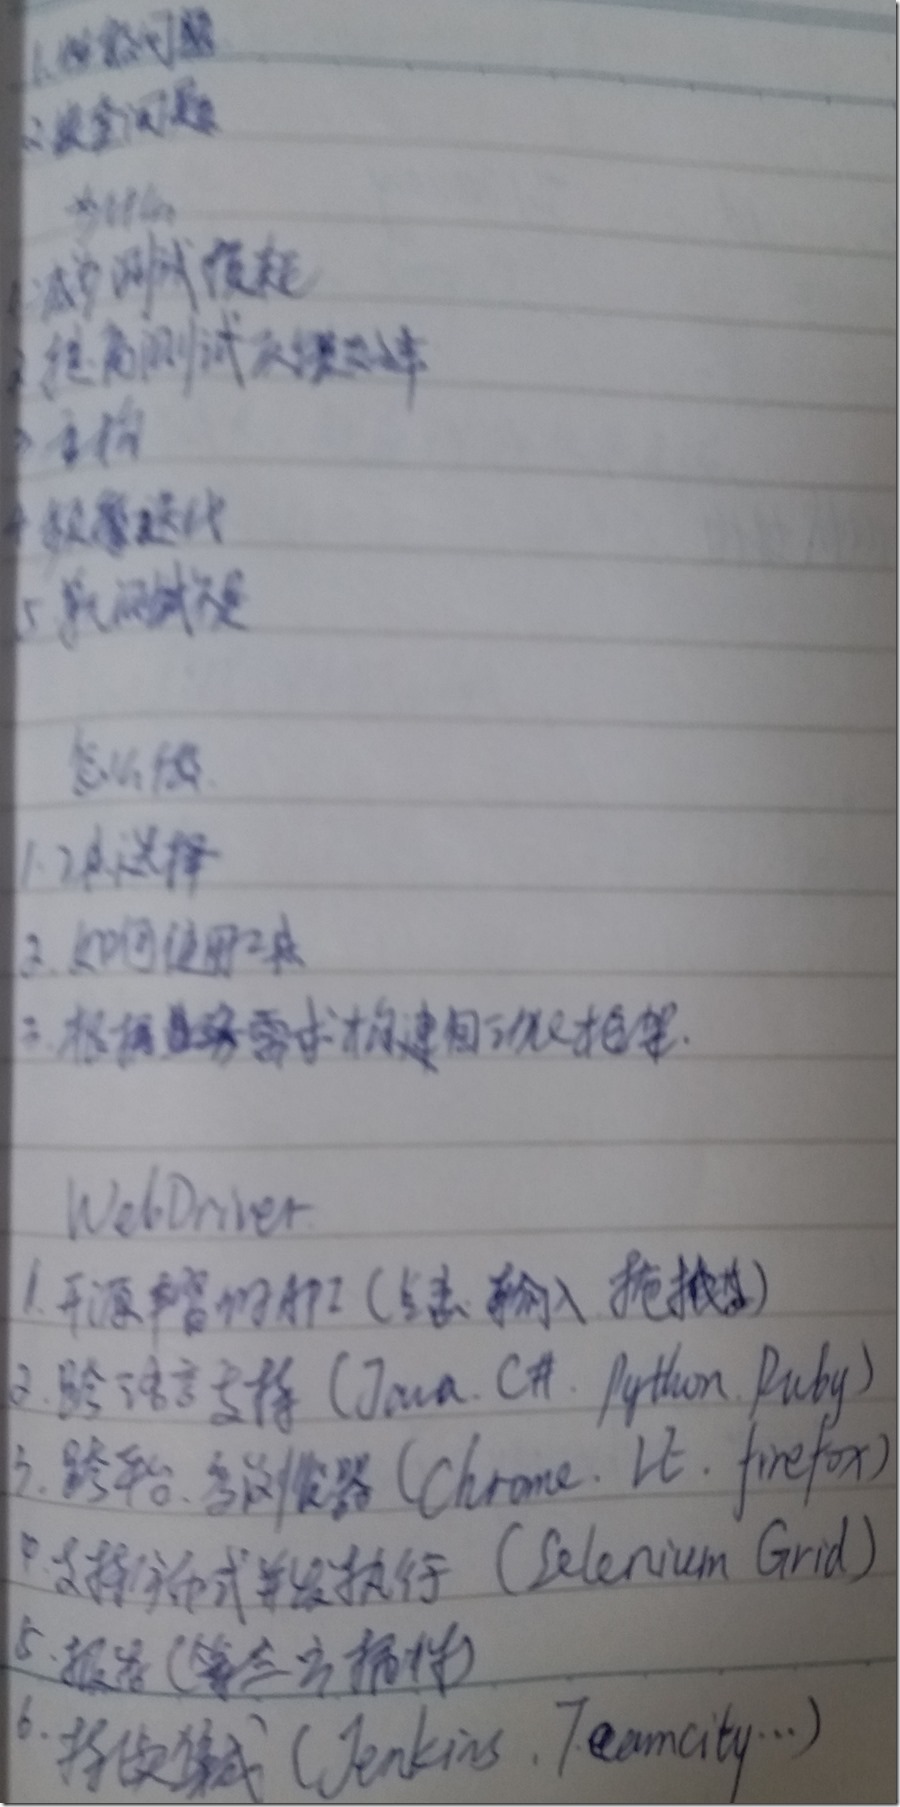 1.性能问题
2.安全问题
为什么
1.减少测试
2.提高测试效率
3.
4.敏捷迭代
5.测试
怎么做
1.工具选择
2.如何使用工具
3.根据业务需求构建自动化框架.
WebDriver
1.开源丰富的API(点击、输入 拖拽)
2.跨语言支持(Java. C#. Python. Ruby)
3.跨平台.多浏览器(Chrome. IE. firefox)
4.支持分布式并发执行 (Selenium Grid)
5.报告(第三方插件)
6.持续集成(Jenkins. Teamcity...)